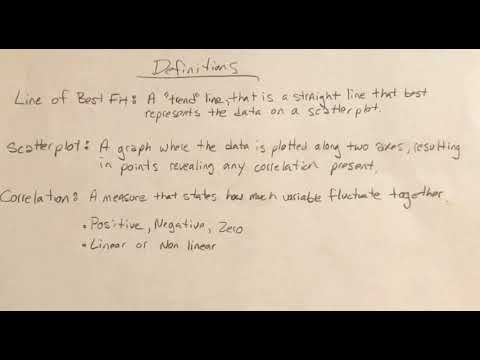 Definitions
Line of Best Fit: A "trend" line, that is a straight line that best
represents the data on a scatterplot.
Scatterplot: A graph where the data is plotted along two axes, resulting
in points revealing any correlation present.
Correlation: A measure that states how much variable fluctuate together.
• Positive, Negative, Zero
• Linear or Non linear